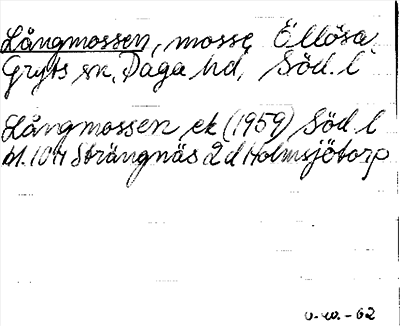 Långmossen, mosse, Ellösa,
Gryts sn, Daga hd, Söd. l.
Långmossen ek (1959) Söd. l
bl. 104 Strängnäs 2 d Holmsjötorp
u.-w. -62